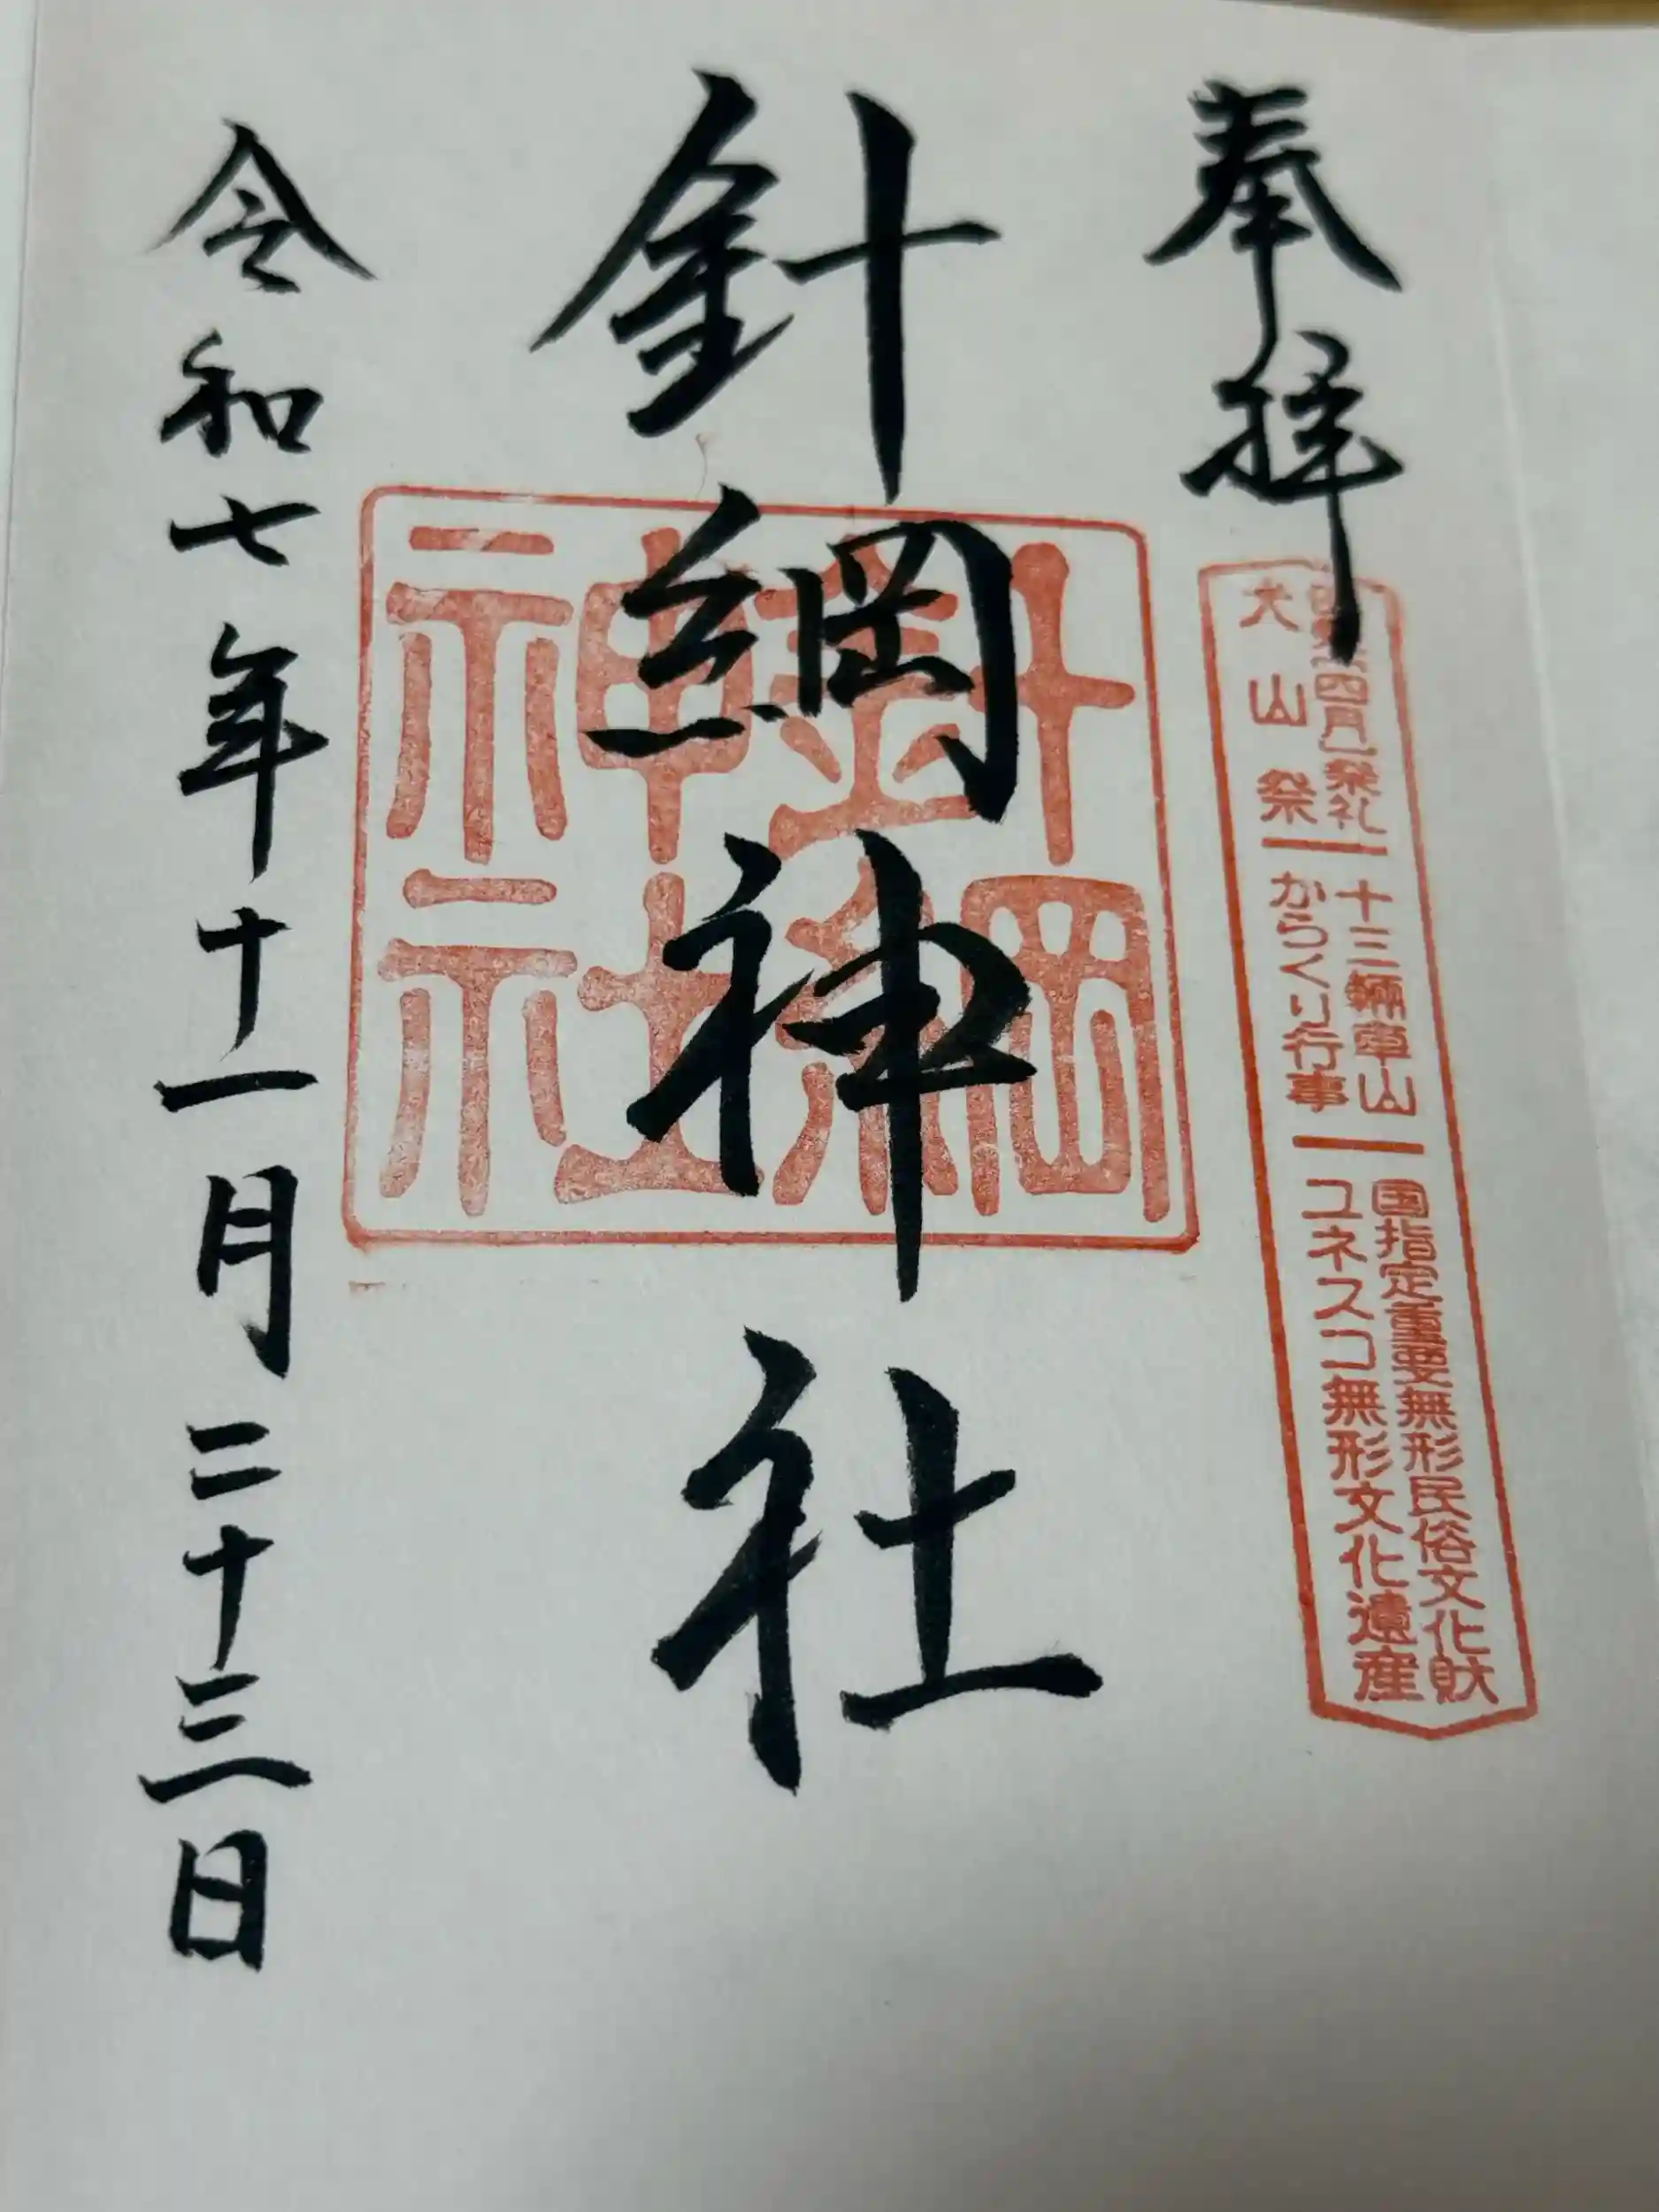 奉拝
四月祭礼
大山祭
十三輛車山
からくり行事
国指定重要無形民俗文化財
ユネスコ無形文化遺産
針綱神社
針綱
神社
令和七年十一月二十三日